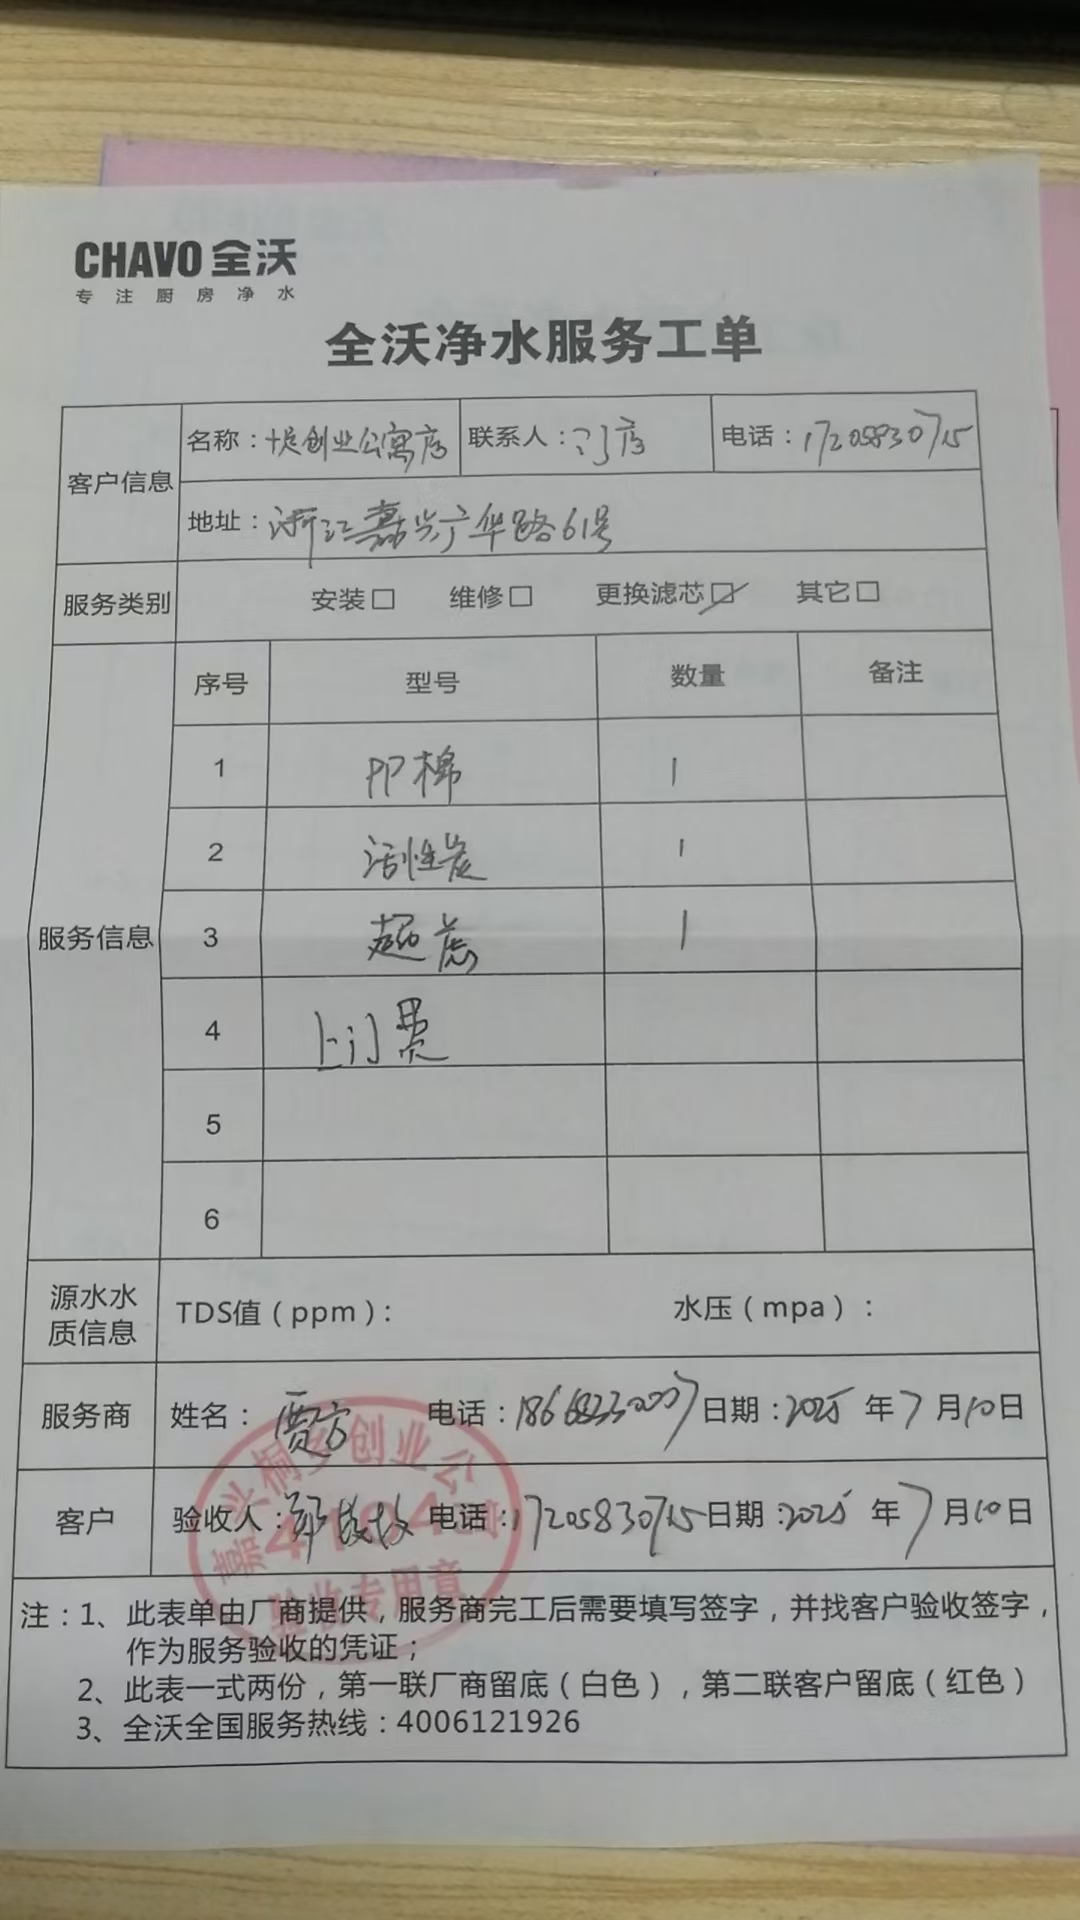 CHAVO 全沃
专注厨房净水
全沃净水服务工单
客户信息 名称：十足创业公寓店 联系人：门店 电话：17205830715
地址：浙江嘉兴广华路61号
服务类别 安装□ 维修□ 更换滤芯☑ 其它□
服务信息 序号 型号 数量 备注
1 PP棉 1
2 活性炭 1
3 超虑 1
4 上门费
5
6
源水水质信息 TDS值（ppm）： 水压（mpa）：
服务商 姓名：贾方 电话：18668330007 日期：2025年7月10日
客户 验收人：郑 电话：17205830715 日期：2025年7月10日
嘉兴桐乡创业公
验收专用章
注：1、此表单由厂商提供，服务商完工后需要填写签字，并找客户验收签字，
作为服务验收的凭证；
2、此表一式两份，第一联厂商留底（白色），第二联客户留底（红色）
3、全沃全国服务热线：4006121926